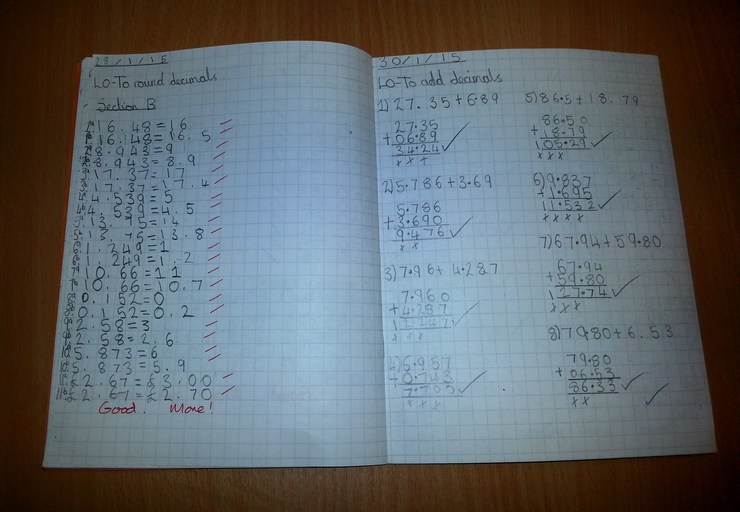 23/1/15
LO-To round decimals
Section B
16.48=16
16.48=16.5
8.943=9
8.943=8.9
17.37=17
17.37=17.4
4.539=5
4.539=4.5
13.75=14
13.75=13.8
1.249=1
1.249=1.2
10.66=11
10.66=10.7
0.152=0
0.152=0.2
2.58=3
2.58=2.6
5.873=6
5.873=5.9
£2.67=£3.00
£2.67=£2.70
Good. More!
30/1/15
LO-To add decimals
1) 27.35+6.89
27.35
+06.89
34.24
x x x
2) 5.786+3.69
5.786
+3.690
9.476
x x
3) 7.96+4.287
7.960
+4.287
12.247
x x
4) 6.957
+0.743
x x x
5) 86.5+18.79
86.50
+18.79
105.29
x x x
6) 9.837
+1.695
11.532
x x x x
7) 67.94+59.80
67.94
+59.80
127.74
x x x
8) 79.80+6.53
79.80
+06.53
86.33
x x